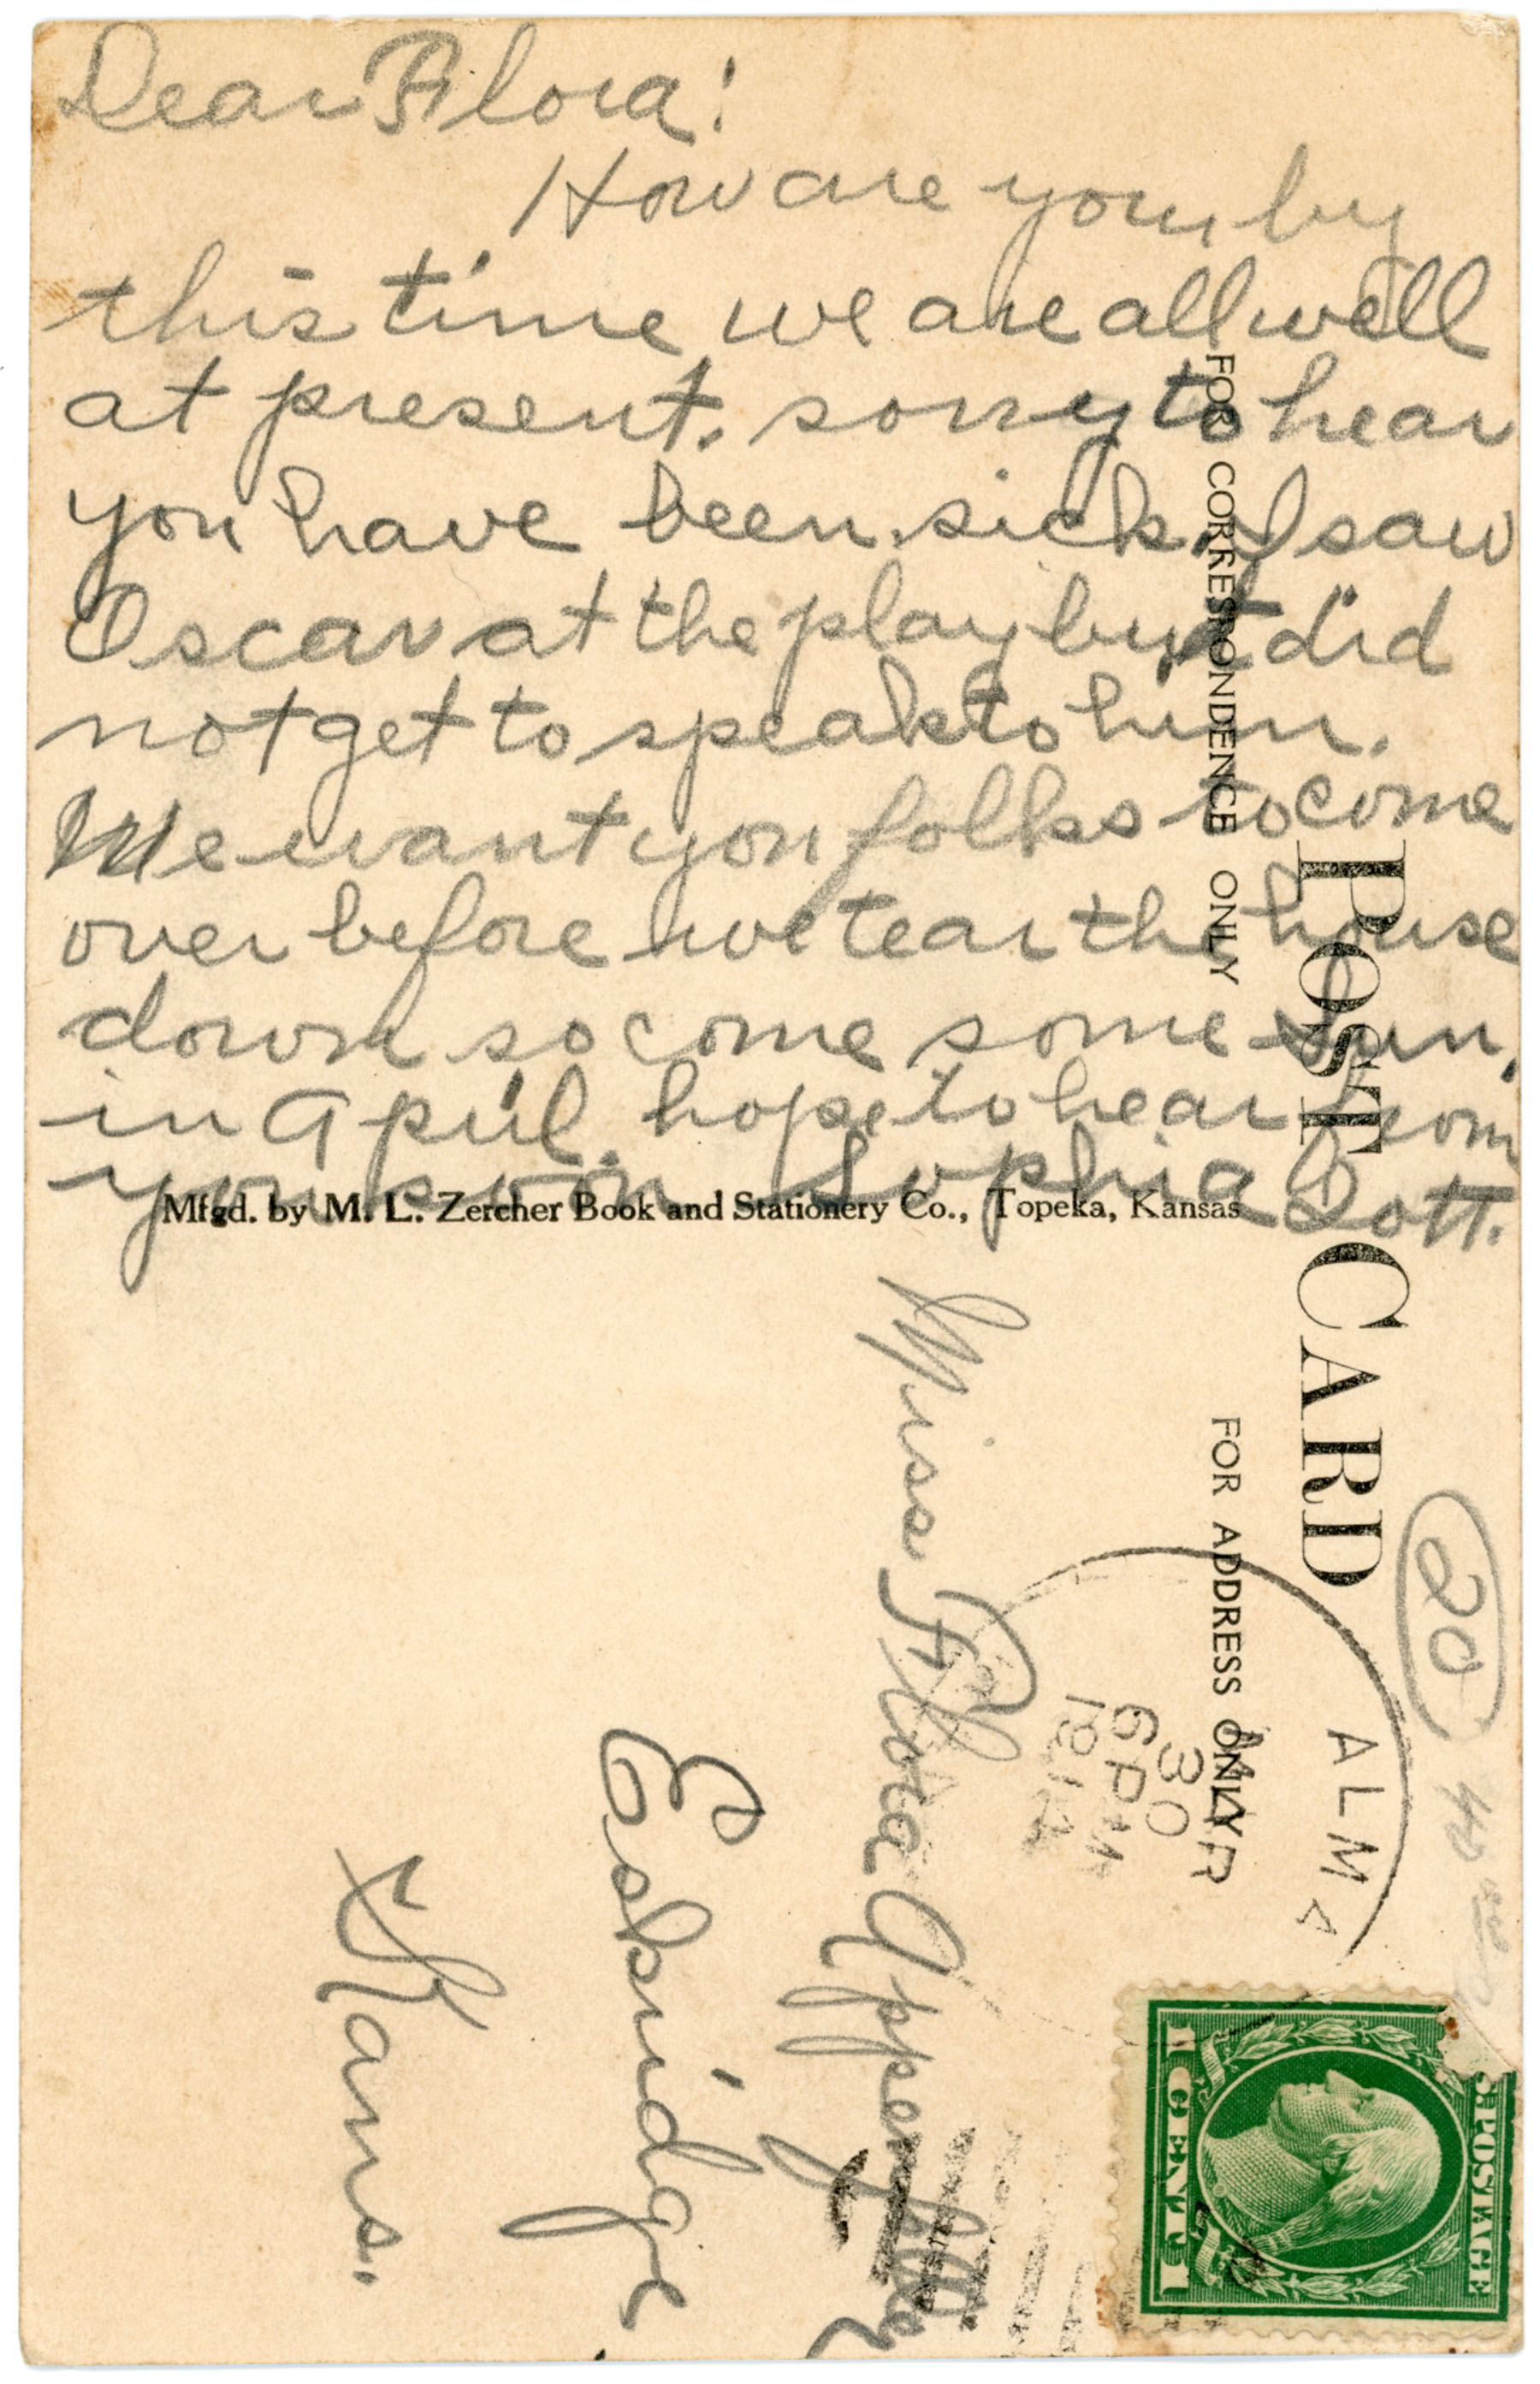 Dear Flora!
How are you by
this time we are all well
at present. sorry to hear
you have been sick. I saw
Oscar at the play but did
not get to speak to him.
We want you folks to come
over before we tear the house
down so come some Sun.
in April. hope to hear from
you soon Sophia Dott.
Mfgd. by M. L. Zercher Book and Stationery Co., Topeka, Kansas
POST CARD
FOR CORRESPONDENCE ONLY
FOR ADDRESS ONLY
20
ALMA
MAR
30
6 PM
1914
S. POSTAGE
1 CENT 1
Miss Flora
Eskridge
Kans.